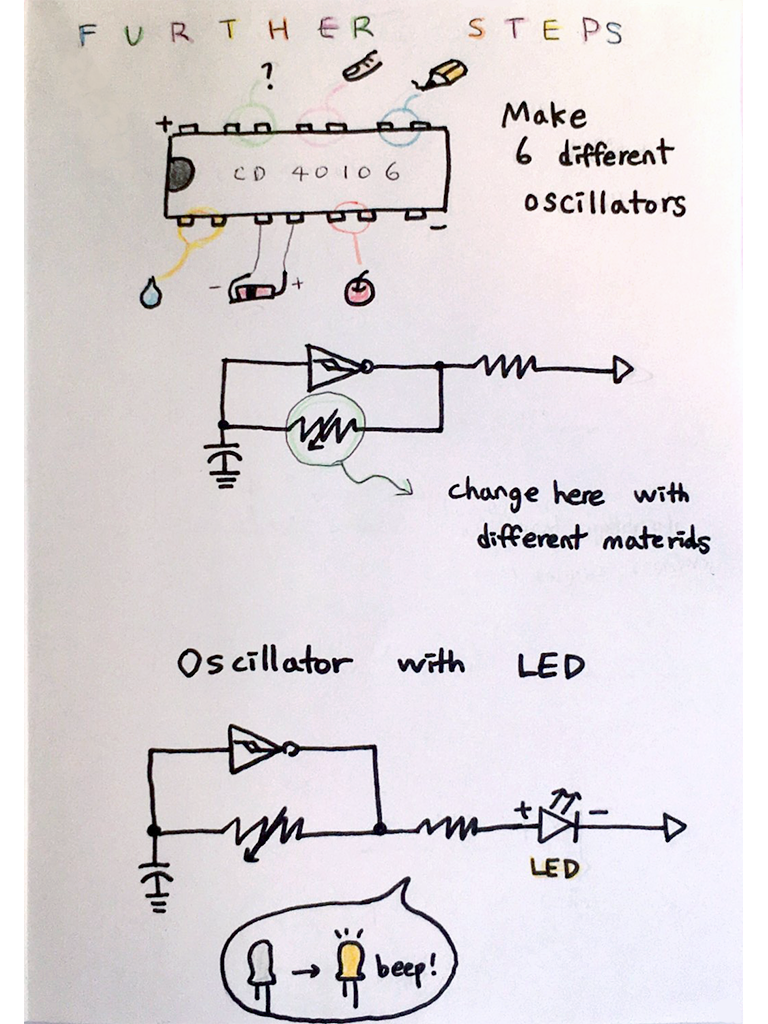 FURTHER STEPS
?
+
CD 40106
-
- +
Make
6 different
oscillators
change here with
different materids
Oscillator with LED
+ -
LED
beep!